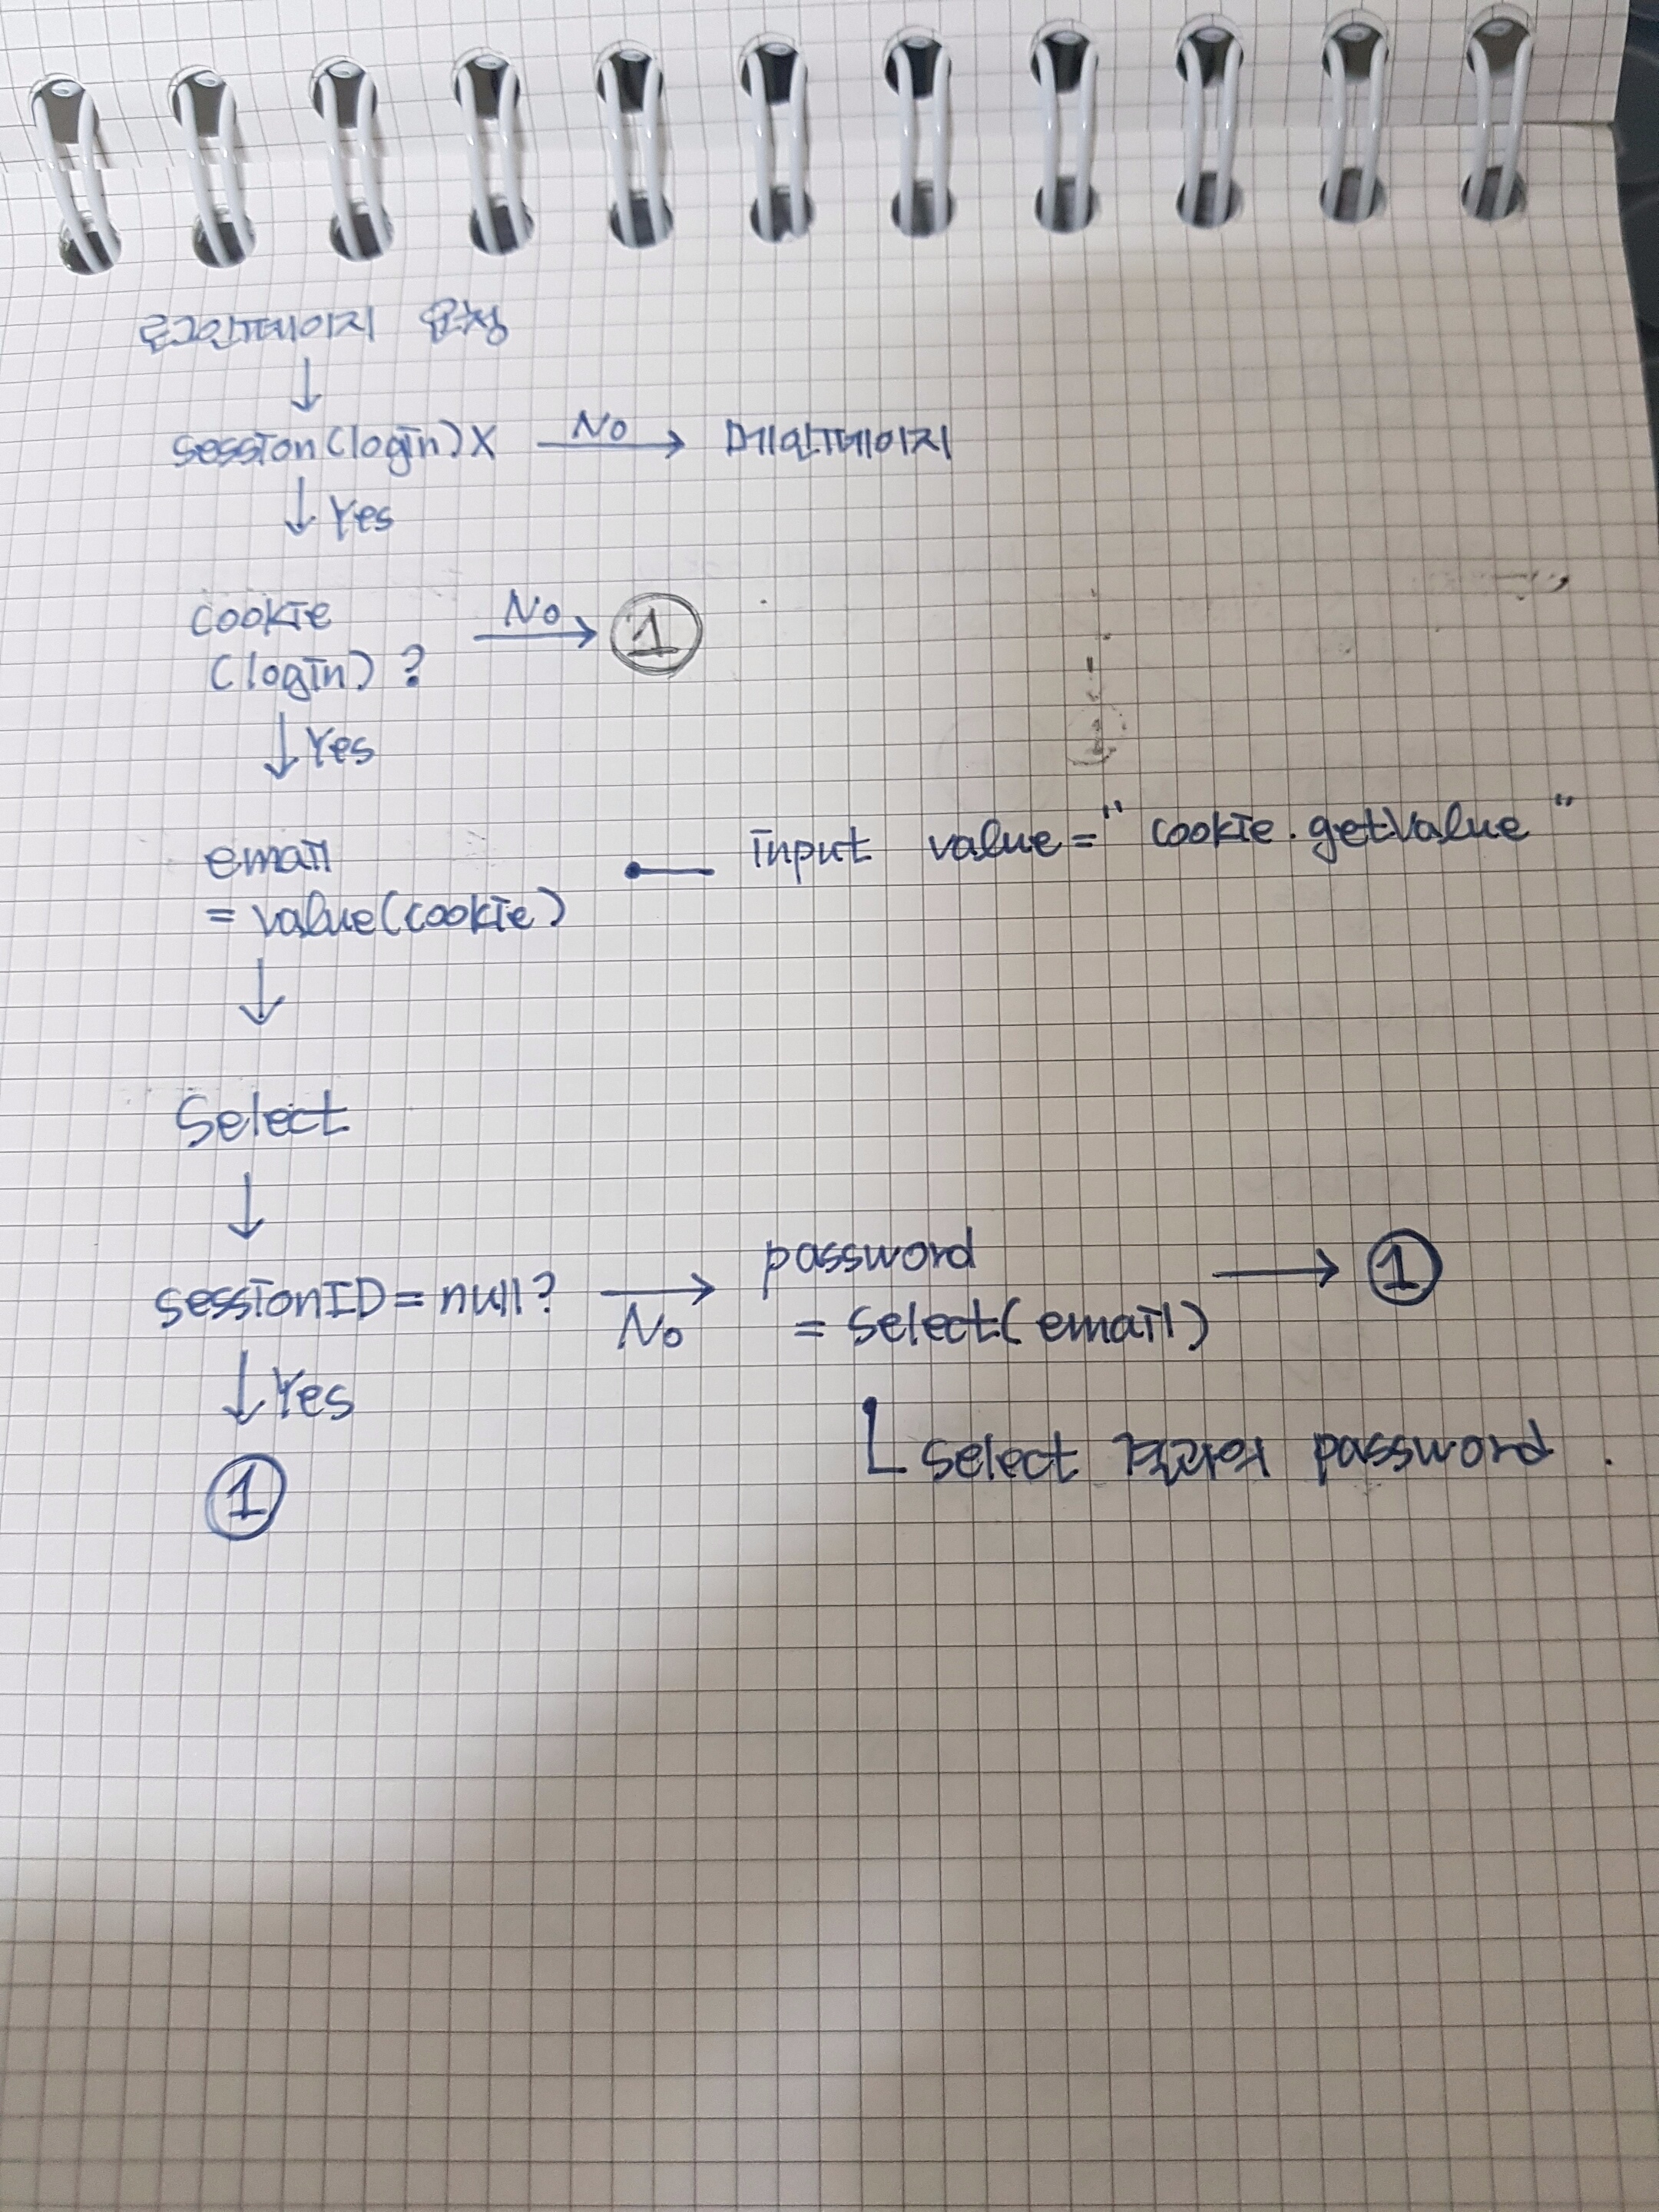 로그인페이지 요청
↓
session(login)X —No→ 메인페이지
↓ Yes
cookie —No→ ①
(login)?
↓ Yes
email •— input value="cookie.getValue"
= value(cookie)
↓
Select
↓
sessionID=null? —No→ password → ①
= select(email)
↓ Yes
└ select 결과의 password.
①